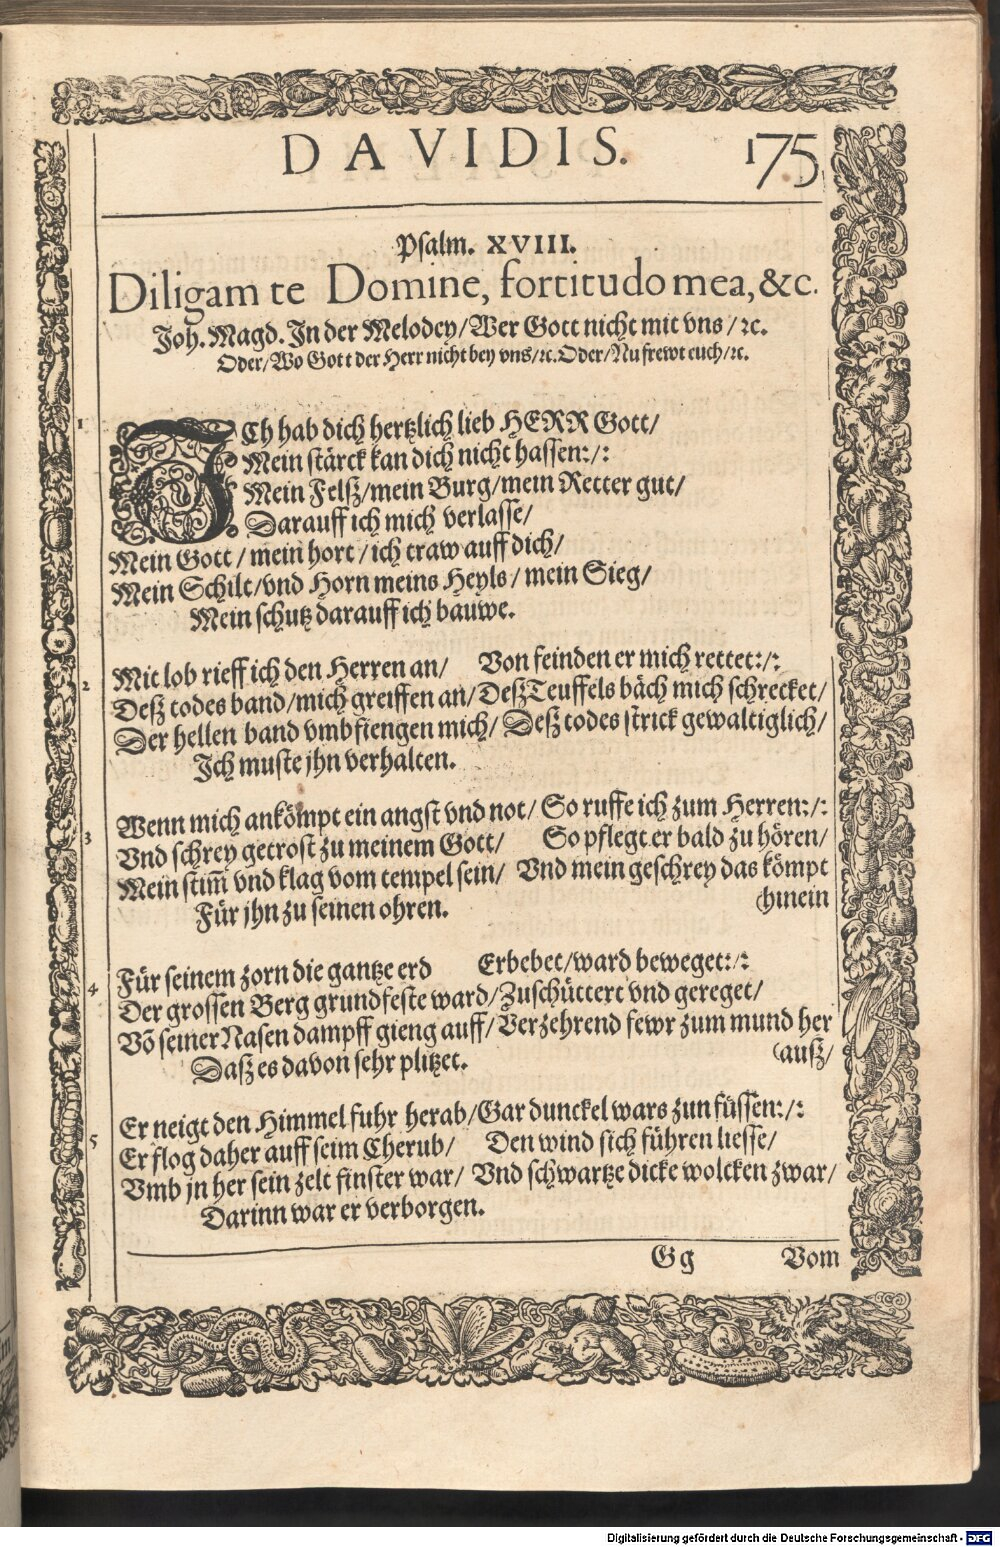 DAVIDIS. 175
Psalm. XVIII.
Diligam te Domine, fortitudo mea, &c.
Joh. Magd. In der Melodey/Wer Gott nicht mit vns/ꝛc.
Oder/Wo Gott der Herr nicht bey vns/ꝛc. Oder/Nu frewt euch/ꝛc.
1 ICh hab dich hertzlich lieb HERR Gott/
Mein stärck kan dich nicht hassen:/:
Mein Felsz/mein Burg/mein Retter gut/
Darauff ich mich verlasse/
Mein Gott/ mein hort/ ich traw auff dich/
Mein Schilt/vnd Horn meins Heyls/ mein Sieg/
Mein schutz darauff ich bauwe.
2 Mit lob rieff ich den Herren an/ Von feinden er mich rettet:/:
Desz todes band/mich greiffen an/Desz Teuffels bäch mich schrecket/
Der hellen band vmbfiengen mich/ Desz todes strick gewaltiglich/
Ich muste jhn verhalten.
3 Wenn mich ankömpt ein angst vnd not/ So ruffe ich zum Herren:/:
Vnd schrey getrost zu meinem Gott/ So pflegt er bald zu hören/
Mein stim̃ vnd klag vom tempel sein/ Vnd mein geschrey das kömpt
Für jhn zu seinen ohren. (hinein
4 Für seinem zorn die gantze erd Erbebet/ward beweget:/:
Der grossen Berg grundfeste ward/Zuschüttert vnd gereget/
Võ seiner Nasen dampff gieng auff/Verzehrend fewr zum mund her
Dasz es davon sehr plitzet. (ausz/
5 Er neigt den Himmel fuhr herab/Gar dunckel wars zun füssen:/:
Er flog daher auff seim Cherub/ Den wind sich führen liesse/
Vmb jn her sein zelt finster war/ Vnd schwartze dicke wolcken zwar/
Darinn war er verborgen.
Gg Vom
Digitalisierung gefördert durch die Deutsche Forschungsgemeinschaft - DFG